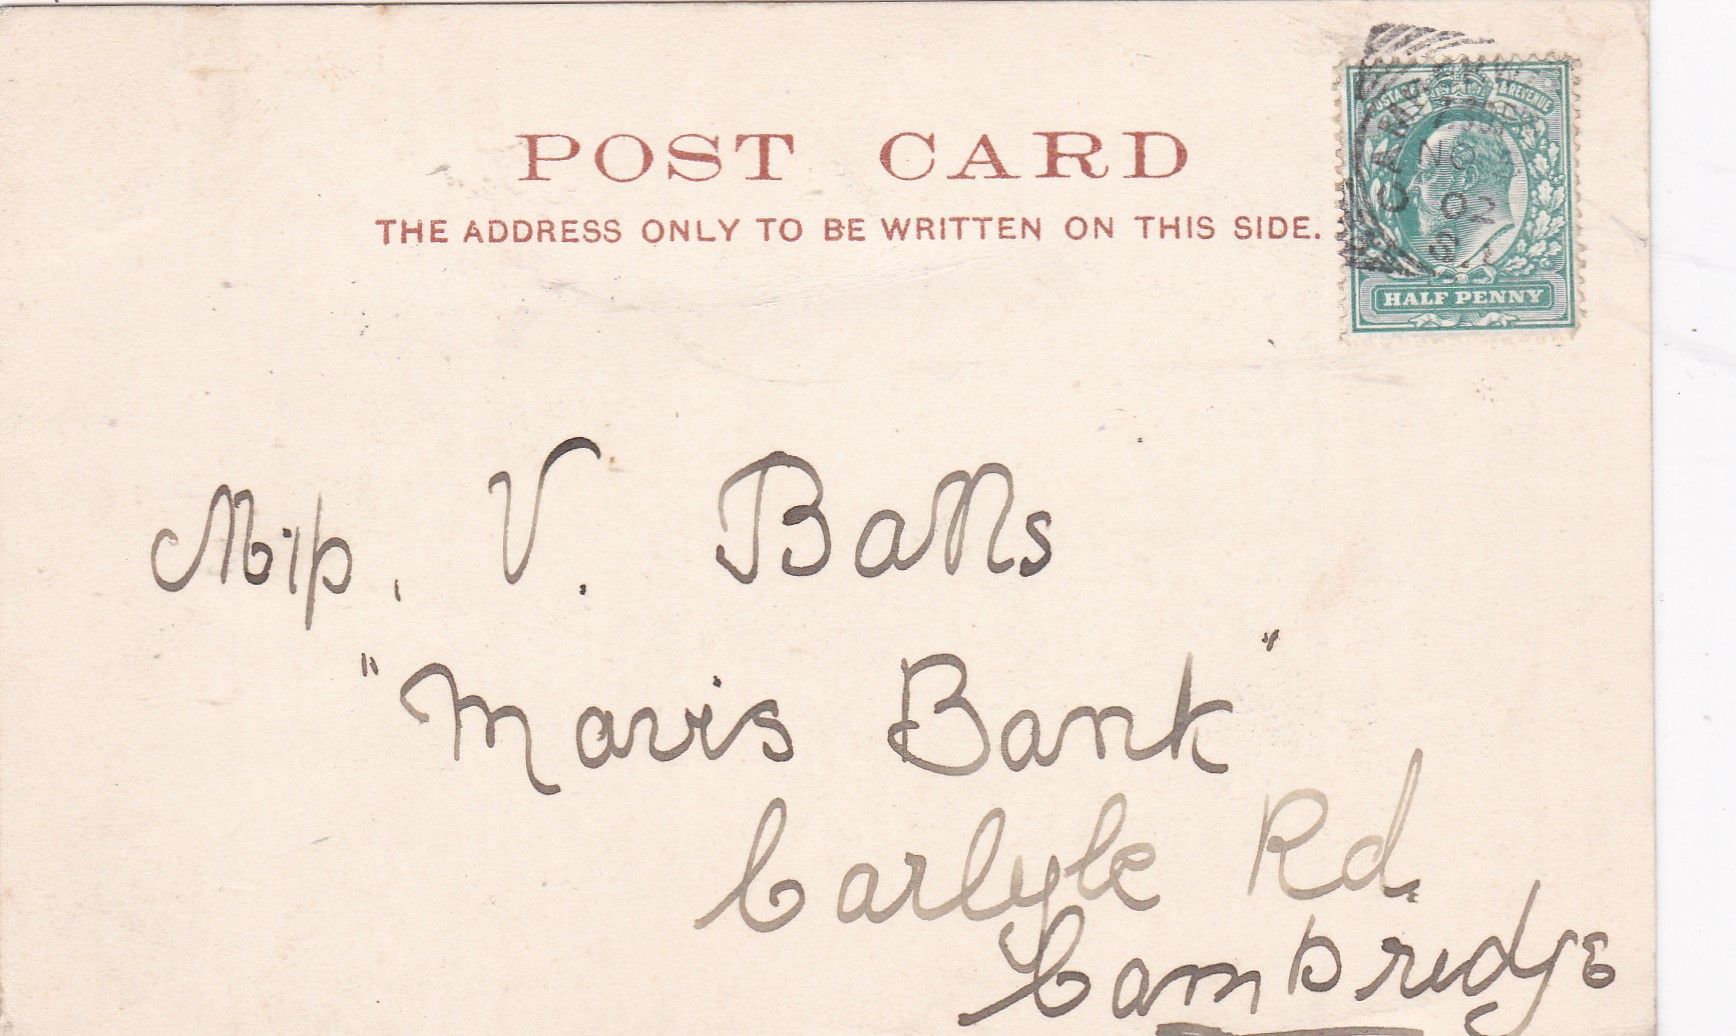 POST CARD
THE ADDRESS ONLY TO BE WRITTEN ON THIS SIDE.
& REVENUE
HALF PENNY
Miss. V. Balls
"Mavis Bank"
Carlyle Rd.
Cambridge